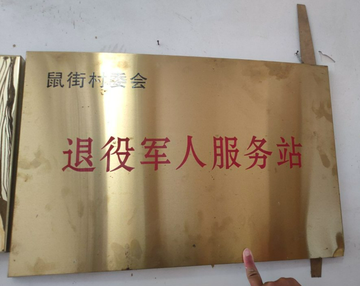 鼠街村委会
退役军人服务站